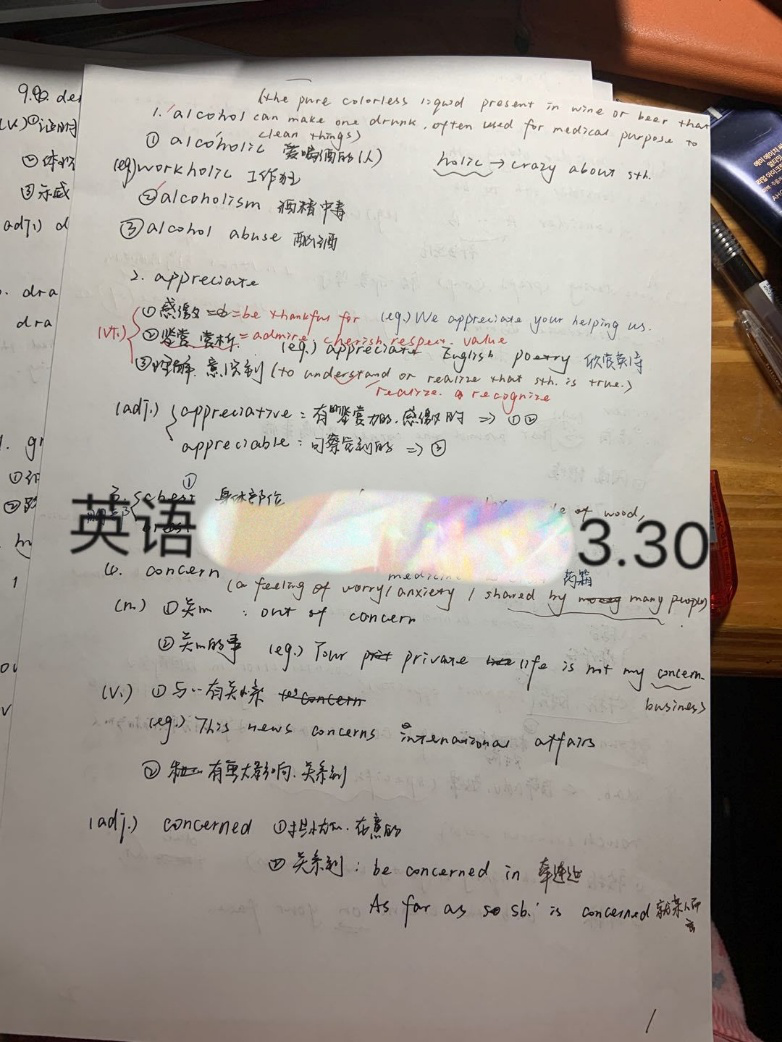 (the pure colorless liquid present in wine or beer that
1. alcohol can make one drunk, often used for medical purpose to
clean things)
① alcoholic 爱喝酒的(人)
holic → crazy about sth.
(eg) workholic 工作狂
② alcoholism 酒精中毒
③ alcohol abuse 酗酒
2. appreciate
(vt.)
① 感激 = be thankful for (eg.) We appreciate your helping us.
② 鉴赏 赏析 = admire cherish. respect. value
(eg.) appreciate English poetry 欣赏英诗
③ 理解. 意识到 (to understand or realize that sth. is true.)
realize. recognize
(adj.) appreciative : 有鉴赏力的. 感激的 => ① ②
appreciable : 可察觉到的 => ③
3. chest ① 身体部位
of wood,
英语 3.30
4. concern
药箱
(a feeling of worry / anxiety / shared by many people)
(n.) ① 关心 : out of concern
② 关心的事 (eg.) Your private life is not my concern
business
(v.) ① 与…有关系 concern
(eg.) This news concerns international affairs
② 有重大影响. 关系到
(adj.) concerned ① 担心的. 在意的
② 关系到 : be concerned in 牵连进
As far as sb. is concerned 就某人而言
1
9.
(v.) ① 证明
② 体
③ 示威
(adj.) d
dra
dra
gr